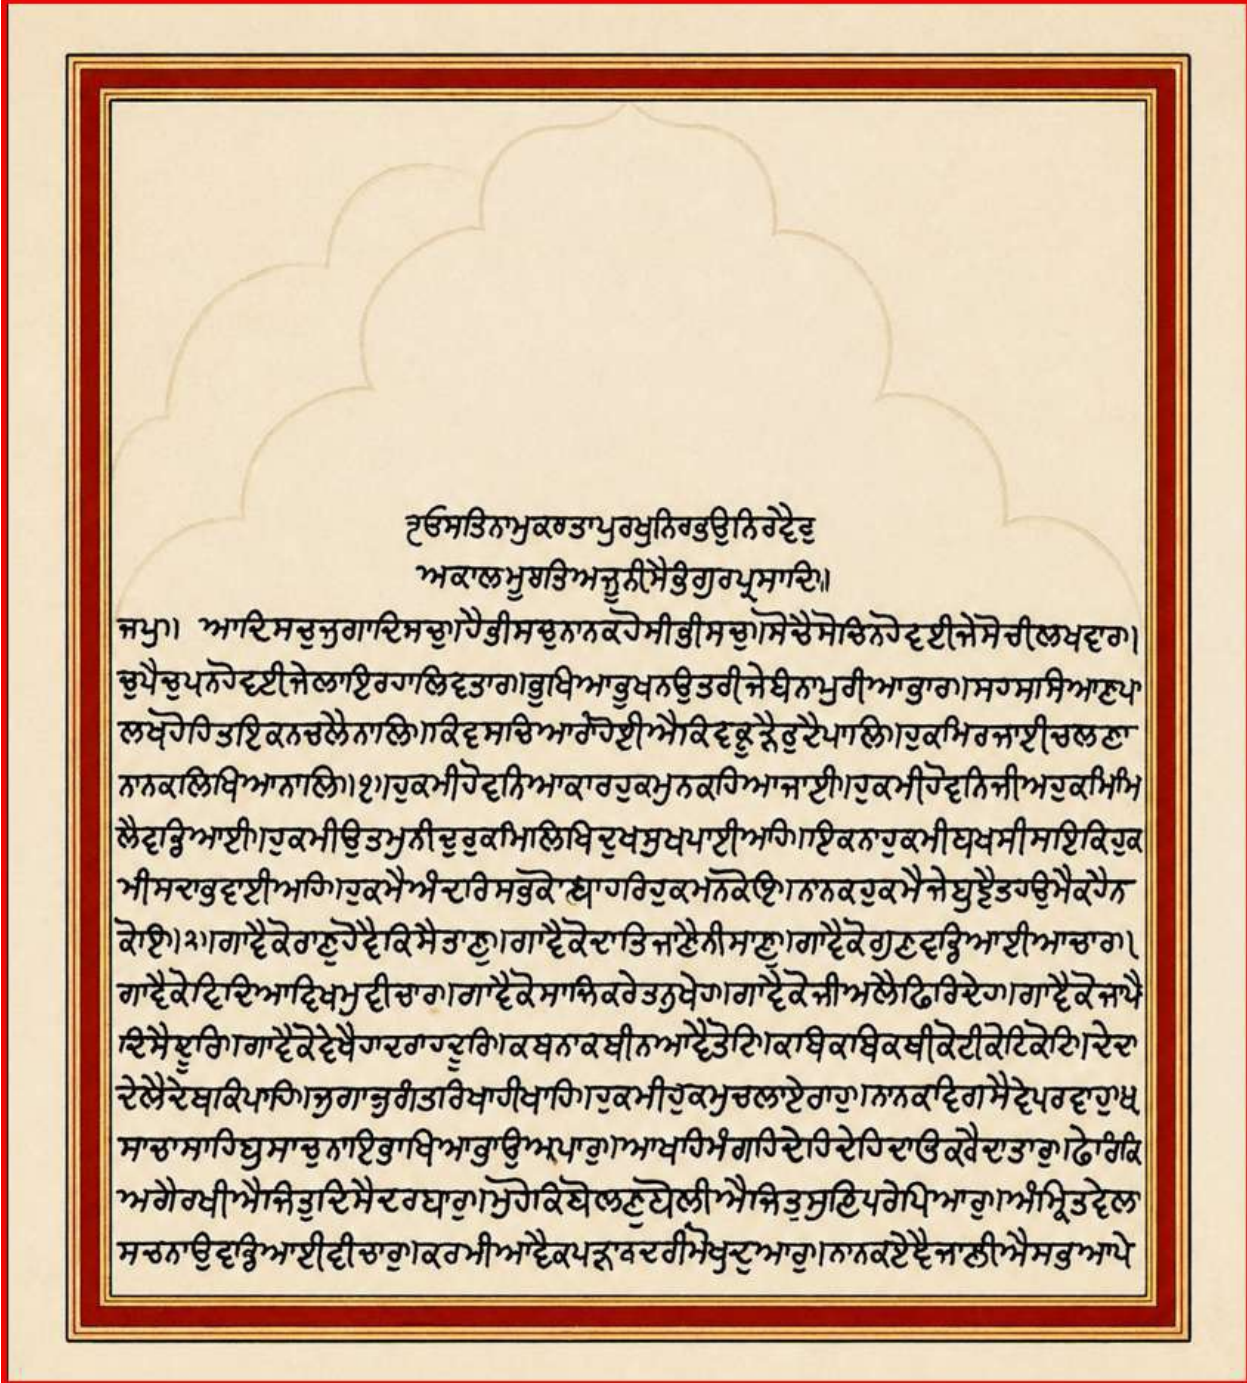 ੴਸਤਿਨਾਮੁਕਰਤਾਪੁਰਖੁਨਿਰਭਉਨਿਰਵੈਰੁ
ਅਕਾਲਮੂਰਤਿਅਜੂਨੀਸੈਭੰਗੁਰਪ੍ਰਸਾਦਿ॥
ਜਪੁ॥ ਆਦਿਸਚੁਜੁਗਾਦਿਸਚੁ॥ਹੈਭੀਸਚੁਨਾਨਕਹੋਸੀਭੀਸਚੁ॥ਸੋਚੈਸੋਚਿਨਹੋਵਈਜੇਸੋਚੀਲਖਵਾਰ॥
ਚੁਪੈਚੁਪਨਹੋਵਈਜੇਲਾਇਰਹਾਲਿਵਤਾਰ॥ਭੁਖਿਆਭੁਖਨਉਤਰੀਜੇਬੰਨਾਪੁਰੀਆਭਾਰ॥ਸਹਸਸਿਆਣਪਾ
ਲਖਹੋਹਿਤਇਕਨਚਲੈਨਾਲਿ॥ਕਿਵਸਚਿਆਰਾਹੋਈਐਕਿਵਕੂੜੈਤੁਟੈਪਾਲਿ॥ਹੁਕਮਿਰਜਾਈਚਲਣਾ
ਨਾਨਕਲਿਖਿਆਨਾਲਿ॥੧॥ਹੁਕਮੀਹੋਵਨਿਆਕਾਰਹੁਕਮੁਨਕਹਿਆਜਾਈ॥ਹੁਕਮੀਹੋਵਨਿਜੀਅਹੁਕਮਿਮਿ
ਲੈਵਡਿਆਈ॥ਹੁਕਮੀਉਤਮੁਨੀਚੁਹੁਕਮਿਲਿਖਿਦੁਖਸੁਖਪਾਈਅਹਿ॥ਇਕਨਾਹੁਕਮੀਬਖਸੀਸਇਕਿਹੁਕ
ਮੀਸਦਾਭਵਾਈਅਹਿ॥ਹੁਕਮੈਅੰਦਰਿਸਭੁਕੋਬਾਹਰਿਹੁਕਮਨਕੋਇ॥ਨਾਨਕਹੁਕਮੈਜੇਬੁਝੈਤਹਉਮੈਕਹੈਨ
ਕੋਇ॥੨॥ਗਾਵੈਕੋਤਾਣੁਹੋਵੈਕਿਸੈਤਾਣੁ॥ਗਾਵੈਕੋਦਾਤਿਜਾਣੈਨੀਸਾਣੁ॥ਗਾਵੈਕੋਗੁਣਵਡਿਆਈਆਚਾਰ॥
ਗਾਵੈਕੋਵਿਦਿਆਵਿਖਮੁਵੀਚਾਰੁ॥ਗਾਵੈਕੋਸਾਜਿਕਰੇਤਨੁਖੇਹ॥ਗਾਵੈਕੋਜੀਅਲੈਫਿਰਿਦੇਹ॥ਗਾਵੈਕੋਜਾਪੈ
ਦਿਸੈਦੂਰਿ॥ਗਾਵੈਕੋਵੇਖੈਹਾਦਰਾਹਦੂਰਿ॥ਕਥਨਾਕਥੀਨਆਵੈਤੋਟਿ॥ਕਥਿਕਥਿਕਥੀਕੋਟੀਕੋਟਿਕੋਟਿ॥ਦੇਦਾ
ਦੇਲੈਦੇਥਕਿਪਾਹਿ॥ਜੁਗਾਜੁਗੰਤਰਿਖਾਹੀਖਾਹਿ॥ਹੁਕਮੀਹੁਕਮੁਚਲਾਏਰਾਹੁ॥ਨਾਨਕਵਿਗਸੈਵੇਪਰਵਾਹੁ॥੩
ਸਾਚਾਸਾਹਿਬੁਸਾਚੁਨਾਇਭਾਖਿਆਭਾਉਅਪਾਰੁ॥ਆਖਹਿਮੰਗਹਿਦੇਹਿਦੇਹਿਦਾਤਿਕਰੈਦਾਤਾਰੁ॥ਫੇਰਿਕਿ
ਅਗੈਰਖੀਐਜਿਤੁਦਿਸੈਦਰਬਾਰੁ॥ਮੁਹੌਕਿਬੋਲਣੁਬੋਲੀਐਜਿਤੁਸੁਣਿਧਰੇਪਿਆਰੁ॥ਅੰਮ੍ਰਿਤਵੇਲਾ
ਸਚਨਾਉਵਡਿਆਈਵੀਚਾਰੁ॥ਕਰਮੀਆਵੈਕਪੜਾਨਦਰੀਮੋਖੁਦੁਆਰੁ॥ਨਾਨਕਏਵੈਜਾਣੀਐਸਭੁਆਪੇ